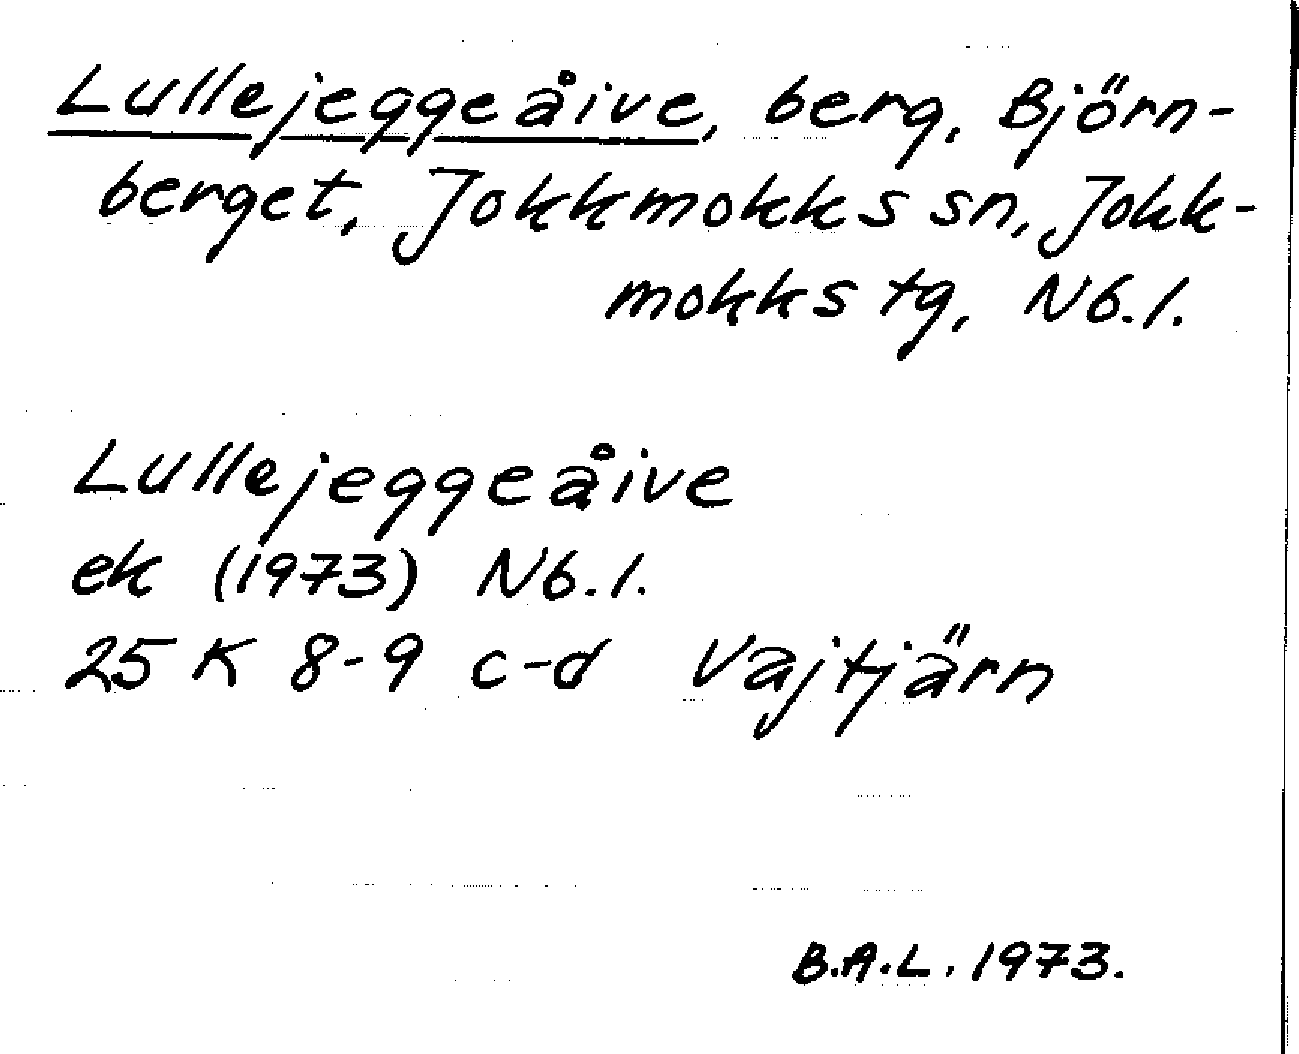 Lullejeggeåive, berg, Björn-
berget, Jokkmokks sn, Jokk-
mokks tg, Nb.l.
Lullejeggeåive
ek (1973) Nb.l.
25 K 8-9 c-d Vajtjärn
B.A.L. 1973.